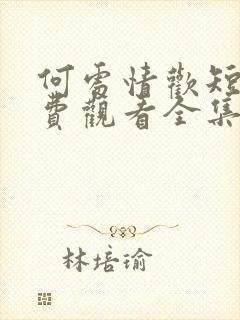 何處情歡短
費觀看全集
林培瑜